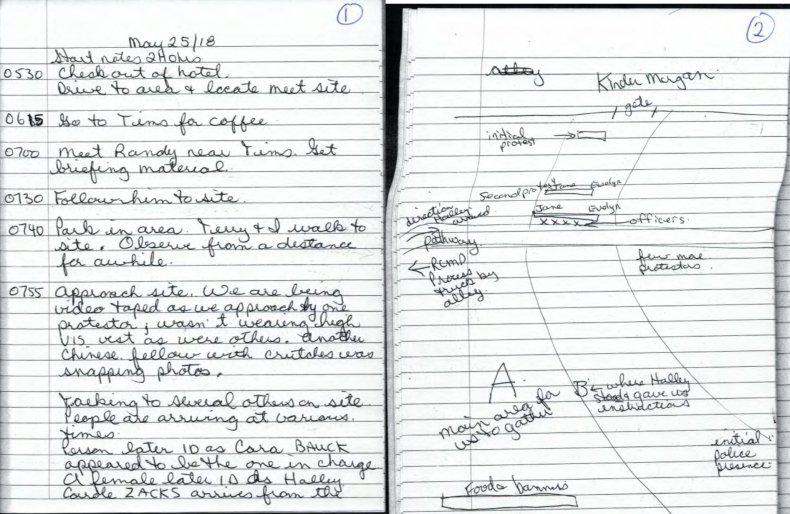 1
May 25/18
Start notes 24 hrs
0530 Check out of hotel.
Drive to area & locate meet site
0615 Go to Tims for coffee
0700 Meet Randy near Tims. Get
briefing material.
0730 Follow him to site.
0740 Park in area. Terry & I walk to
site. Observe from a distance
for awhile.
0755 Approach site. We are being
video taped as we approach by one
protestor, wasn't wearing high
vis vest as were others. Another
Chinese fellow with crutches was
snapping photos.
Talking to several others on site
People are arriving at various
times.
Person later ID as Cora BAUCK
appeared to be the one in charge
A female later ID as Halley
Carole ZACKS arrives from the
2
Kinder Morgan
gate
initial
protest
Second protest Jane Evelyn
direction
Halley
arrived
Jane Evelyn
xxxxx officers.
pathway
RCMP
Process
truck by
alley.
few more
protestors.
A
main area for
us to gather
B where Halley
stood & gave us
instructions
initial
police
presence
Food & banners